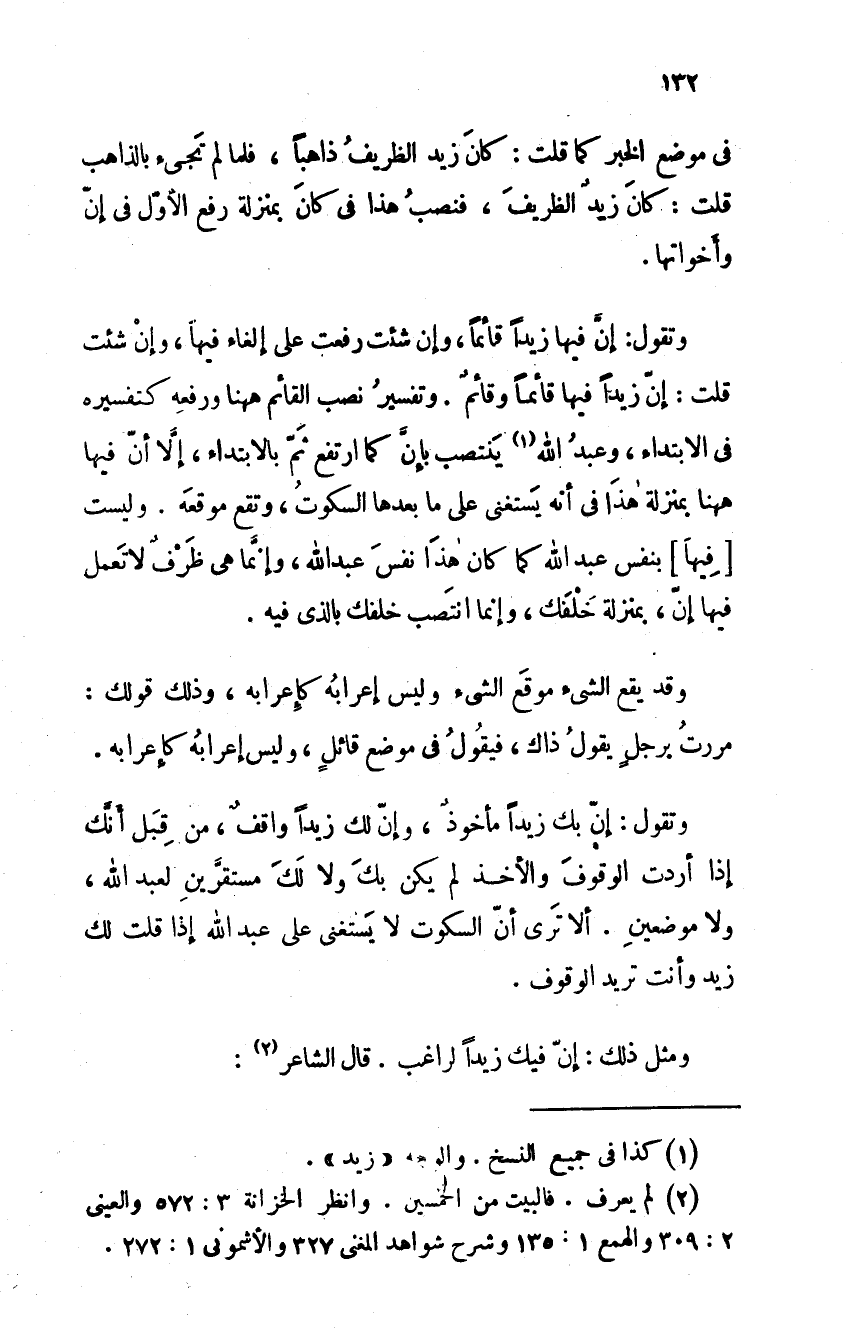 ١٣٢
فى موضع الخبر كما قلت : كانَ زيد الظريفُ ذاهباً ، فلما لم تجىء بالذاهب
قلت : كانَ زيدٌ الظريفَ ، فنصبُ هذا فى كانَ بمنزلة رفع الأوّل فى إنّ
وأخواتها .
وتقول: إنَّ فيها زيداً قائماً ، وإن شئت رفعت على إلغاء فيها ، وإنْ شئت
قلت : إنّ زيداً فيها قائماً وقائمٌ . وتفسيرُ نصب القائم ههنا ورفعِه كتفسيره
فى الابتداء ، وعبدُ الله(١) يَنتصب بإنَّ كما ارتفع ثَمّ بالابتداء ، إلَّا أنّ فيها
ههنا بمنزلة هٰذَا فى أنه يَستغنى على ما بعدها السكوتُ ، وتقع موقعَه . وليست
[ فِيهاَ ] بنفس عبد الله كما كان هٰذَا نفسَ عبدالله ، وإنَّما هى ظَرْفٌ لاتَعمل
فيها إنّ ، بمنزلة خَلْفَك ، وإنما انتَصب خلفك بالذى فيه .
وقد يقع الشىء موقعَ الشىء وليس إعرابُه كإعرابه ، وذلك قولك :
مررتُ برجلٍ يقولُ ذاك ، فيقُولُ فى موضع قائلٍ ، وليس إعرابُه كإعرابه .
وتقول : إنّ بك زيداً مأخوذٌ ، وإنّ لك زيداً واقفٌ ، من قِبَل أنَّك
إذا أردت الوقوفَ والأخذ لم يكن بكَ ولا لَكَ مستقرَّينِ لعبد الله ،
ولا موضعينِ . ألا تَرى أنّ السكوت لا يَستغنى على عبد الله إذا قلت لك
زيد وأنت تريد الوقوف .
ومثل ذلك : إنّ فيك زيداً لراغب . قال الشاعر(٢) :
(١) كذا فى جميع النسخ . والوجه « زيد » .
(٢) لم يعرف . فالبيت من الخمسين . وانظر الخزانة ٣ : ٥٧٢ والعينى
٢ : ٣٠٩ والهمع ١ : ١٣٥ وشرح شواهد المغنى ٣٢٧ والأشمونى ١ : ٢٧٢ .